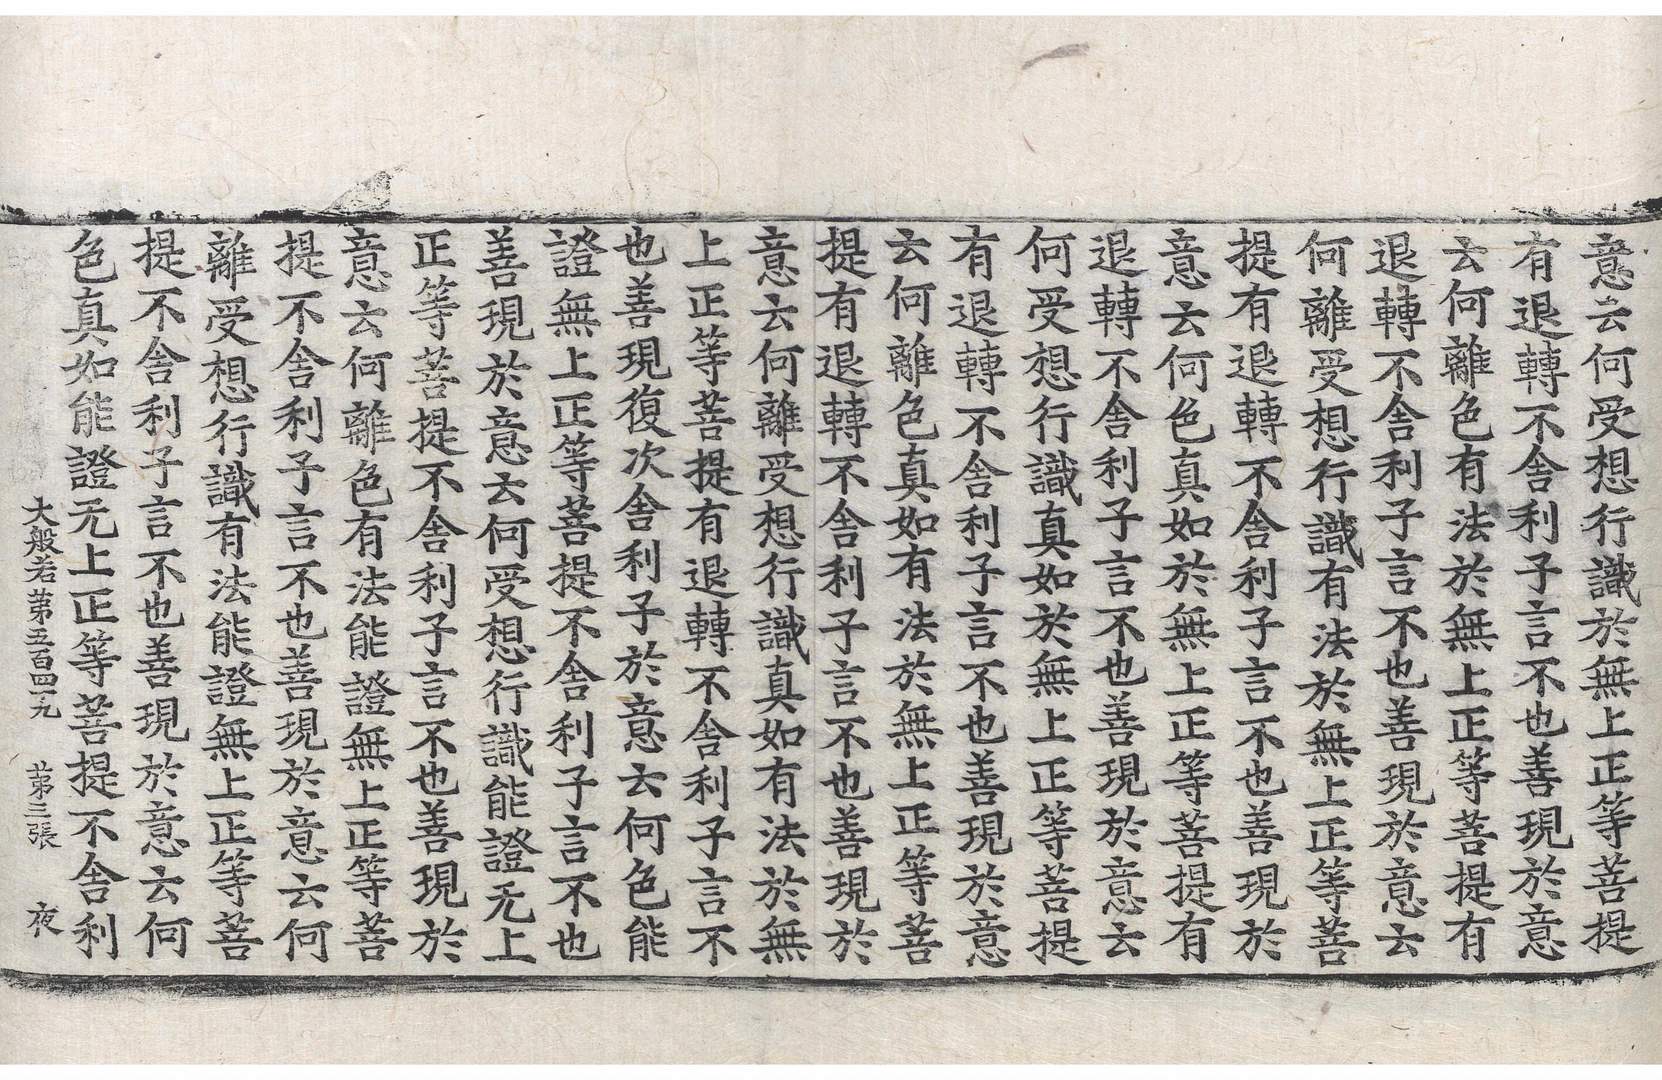 意云何受想行識於無上正等菩提
有退轉不舍利子言不也善現於意
云何離色有法於無上正等菩提有
退轉不舍利子言不也善現於意云
何離受想行識有法於無上正等菩
提有退轉不舍利子言不也善現於
意云何色真如於無上正等菩提有
退轉不舍利子言不也善現於意云
何受想行識真如於無上正等菩提
有退轉不舍利子言不也善現於意
云何離色真如有法於無上正等菩
提有退轉不舍利子言不也善現於
意云何離受想行識真如有法於無
上正等菩提有退轉不舍利子言不
也善現復次舍利子於意云何色能
證無上正等菩提不舍利子言不也
善現於意云何受想行識能證无上
正等菩提不舍利子言不也善現於
意云何離色有法能證無上正等菩
提不舍利子言不也善現於意云何
離受想行識有法能證無上正等菩
提不舍利子言不也善現於意云何
色真如能證无上正等菩提不舍利
大般若第五百四九 第三張 夜